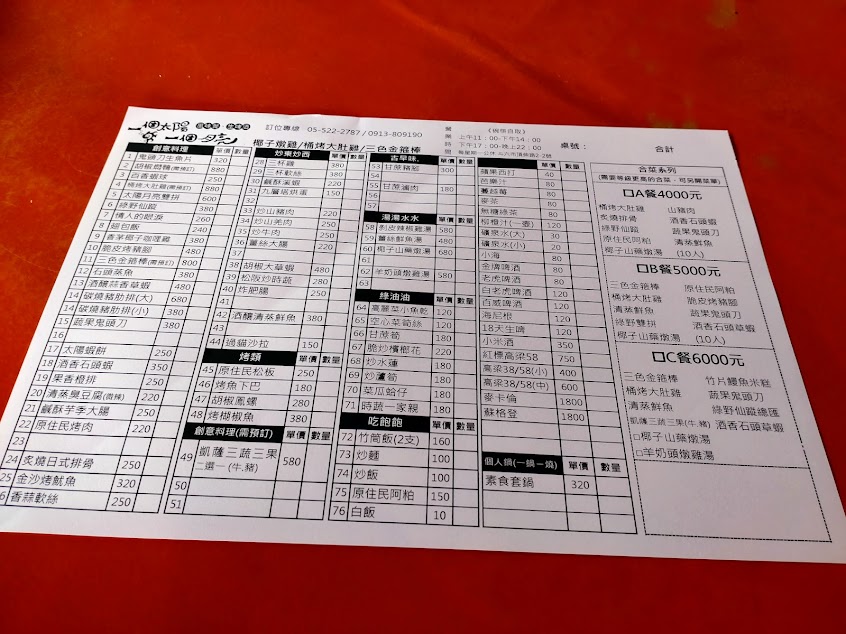 一個太陽
一個月亮
訂位專線 05-522-2787 / 0913-809190
椰子燉雞/桶烤大肚雞/三色金箍棒
上午11：00-下午14：00
下午17：00-晚上22：00
桌號：
合計
創意料理 單價 數量
1 鬼頭刀生魚片 320
3 百香蝦球
4 桶烤大肚雞(需預訂) 880
5 太陽月亮雙拼 600
6 綠野仙蹤 380
7 情人的眼淚 260
8 麵包飯 240
9 香茅椰子咖哩雞 380
10 脆皮烤豬腳
11 三色金箍棒(需預訂) 800
12 石頭蒸魚
13 酒釀蒜香草蝦 480
14 碳燒豬肋排(大) 680
14 碳燒豬肋排(小) 380
15 蔬果鬼頭刀 380
16
17 太陽蝦餅 250
18 酒香石頭蝦 450
19 果香橙排 350
20 清蒸臭豆腐 200
21 鹹酥芋季大腸 220
22 原住民烤肉 220
23
24 炙燒日式排骨 250
25 金沙烤魷魚 320
26 香蒜軟絲 250
炒東炒西 單價 數量
28 三杯雞 380
29 三杯軟絲 380
30 鹹酥溪蝦 220
31 九層塔烘蛋 150
32
33 炒山豬肉 250
34 炒山羌肉 380
35 炒牛肉 250
36 薑絲大腸 220
37
38 胡椒大草蝦 480
39 松阪炒時蔬 280
40 炸肥腸 250
41
42 酒釀清蒸鮮魚 320
43
44 過貓沙拉 150
烤類 單價 數量
45 原住民松板 250
46 烤魚下巴 180
47 胡椒鳳螺 280
48 烤槭椒魚 380
創意料理(需預訂) 單價 數量
49 凱薩三蔬三果 580
二選一 (牛.豬)
50
51
古早味 單價 數量
53 甘蔗豬腳 300
54
55 甘蔗滷肉 180
56
57
湯湯水水 單價 數量
58 剝皮辣椒雞湯 580
59 薑絲鮮魚湯 480
60 椰子山藥燉湯 380
61
62 羊奶頭燉雞湯 580
63
綠油油 單價 數量
64 高麗菜小魚乾 120
65 空心菜筍絲 120
66 甘蔗筍 180
67 脆炒檳榔花 220
68 炒水蓮 180
69 炒蘆筍 180
70 菜瓜蛤仔 180
71 時蔬一家親 180
吃飽飽 單價 數量
72 竹筒飯(2支) 160
73 炒麵 100
74 炒飯 100
75 原住民阿粨 150
76 白飯 10
單價 數量
蘋果西打 40
芭樂汁 80
蔓越莓 80
麥茶 80
無糖綠茶 80
柳橙汁(一壺) 120
礦泉水(大) 30
礦泉水(小) 20
小海 80
金牌啤酒 80
老虎啤酒 80
白老虎啤酒 80
百威啤酒 80
海尼根 120
18天生啤 120
小米酒 350
紅標高梁58 750
高梁38/58(小) 400
高梁38/58(中) 600
麥卡倫 1800
蘇格登 1800
個人鍋(一鍋一燒) 單價 數量
素食套鍋 320
合菜系列
(需要等級更高的合菜，可另開菜單)
□A餐4000元
桶烤大肚雞 山豬肉
炙燒排骨 酒香石頭蝦
綠野仙蹤 蔬果鬼頭刀
原住民阿粨 清蒸鮮魚
椰子山藥燉湯 (10人)
□B餐5000元
三色金箍棒 原住民阿粨
桶烤大肚雞 脆皮烤豬腳
清蒸鮮魚 蔬菜鬼頭刀
綠野雙拼 酒香石頭草蝦
椰子山藥燉湯 (10人)
□C餐6000元
三色金箍棒 竹片鰻魚米糕
桶烤大肚雞 蔬菜鬼頭刀
清蒸鮮魚 綠野仙蹤總匯
凱薩三蔬三果(牛.豬) 酒香石頭草蝦
□椰子山藥燉湯
□羊奶頭燉雞湯